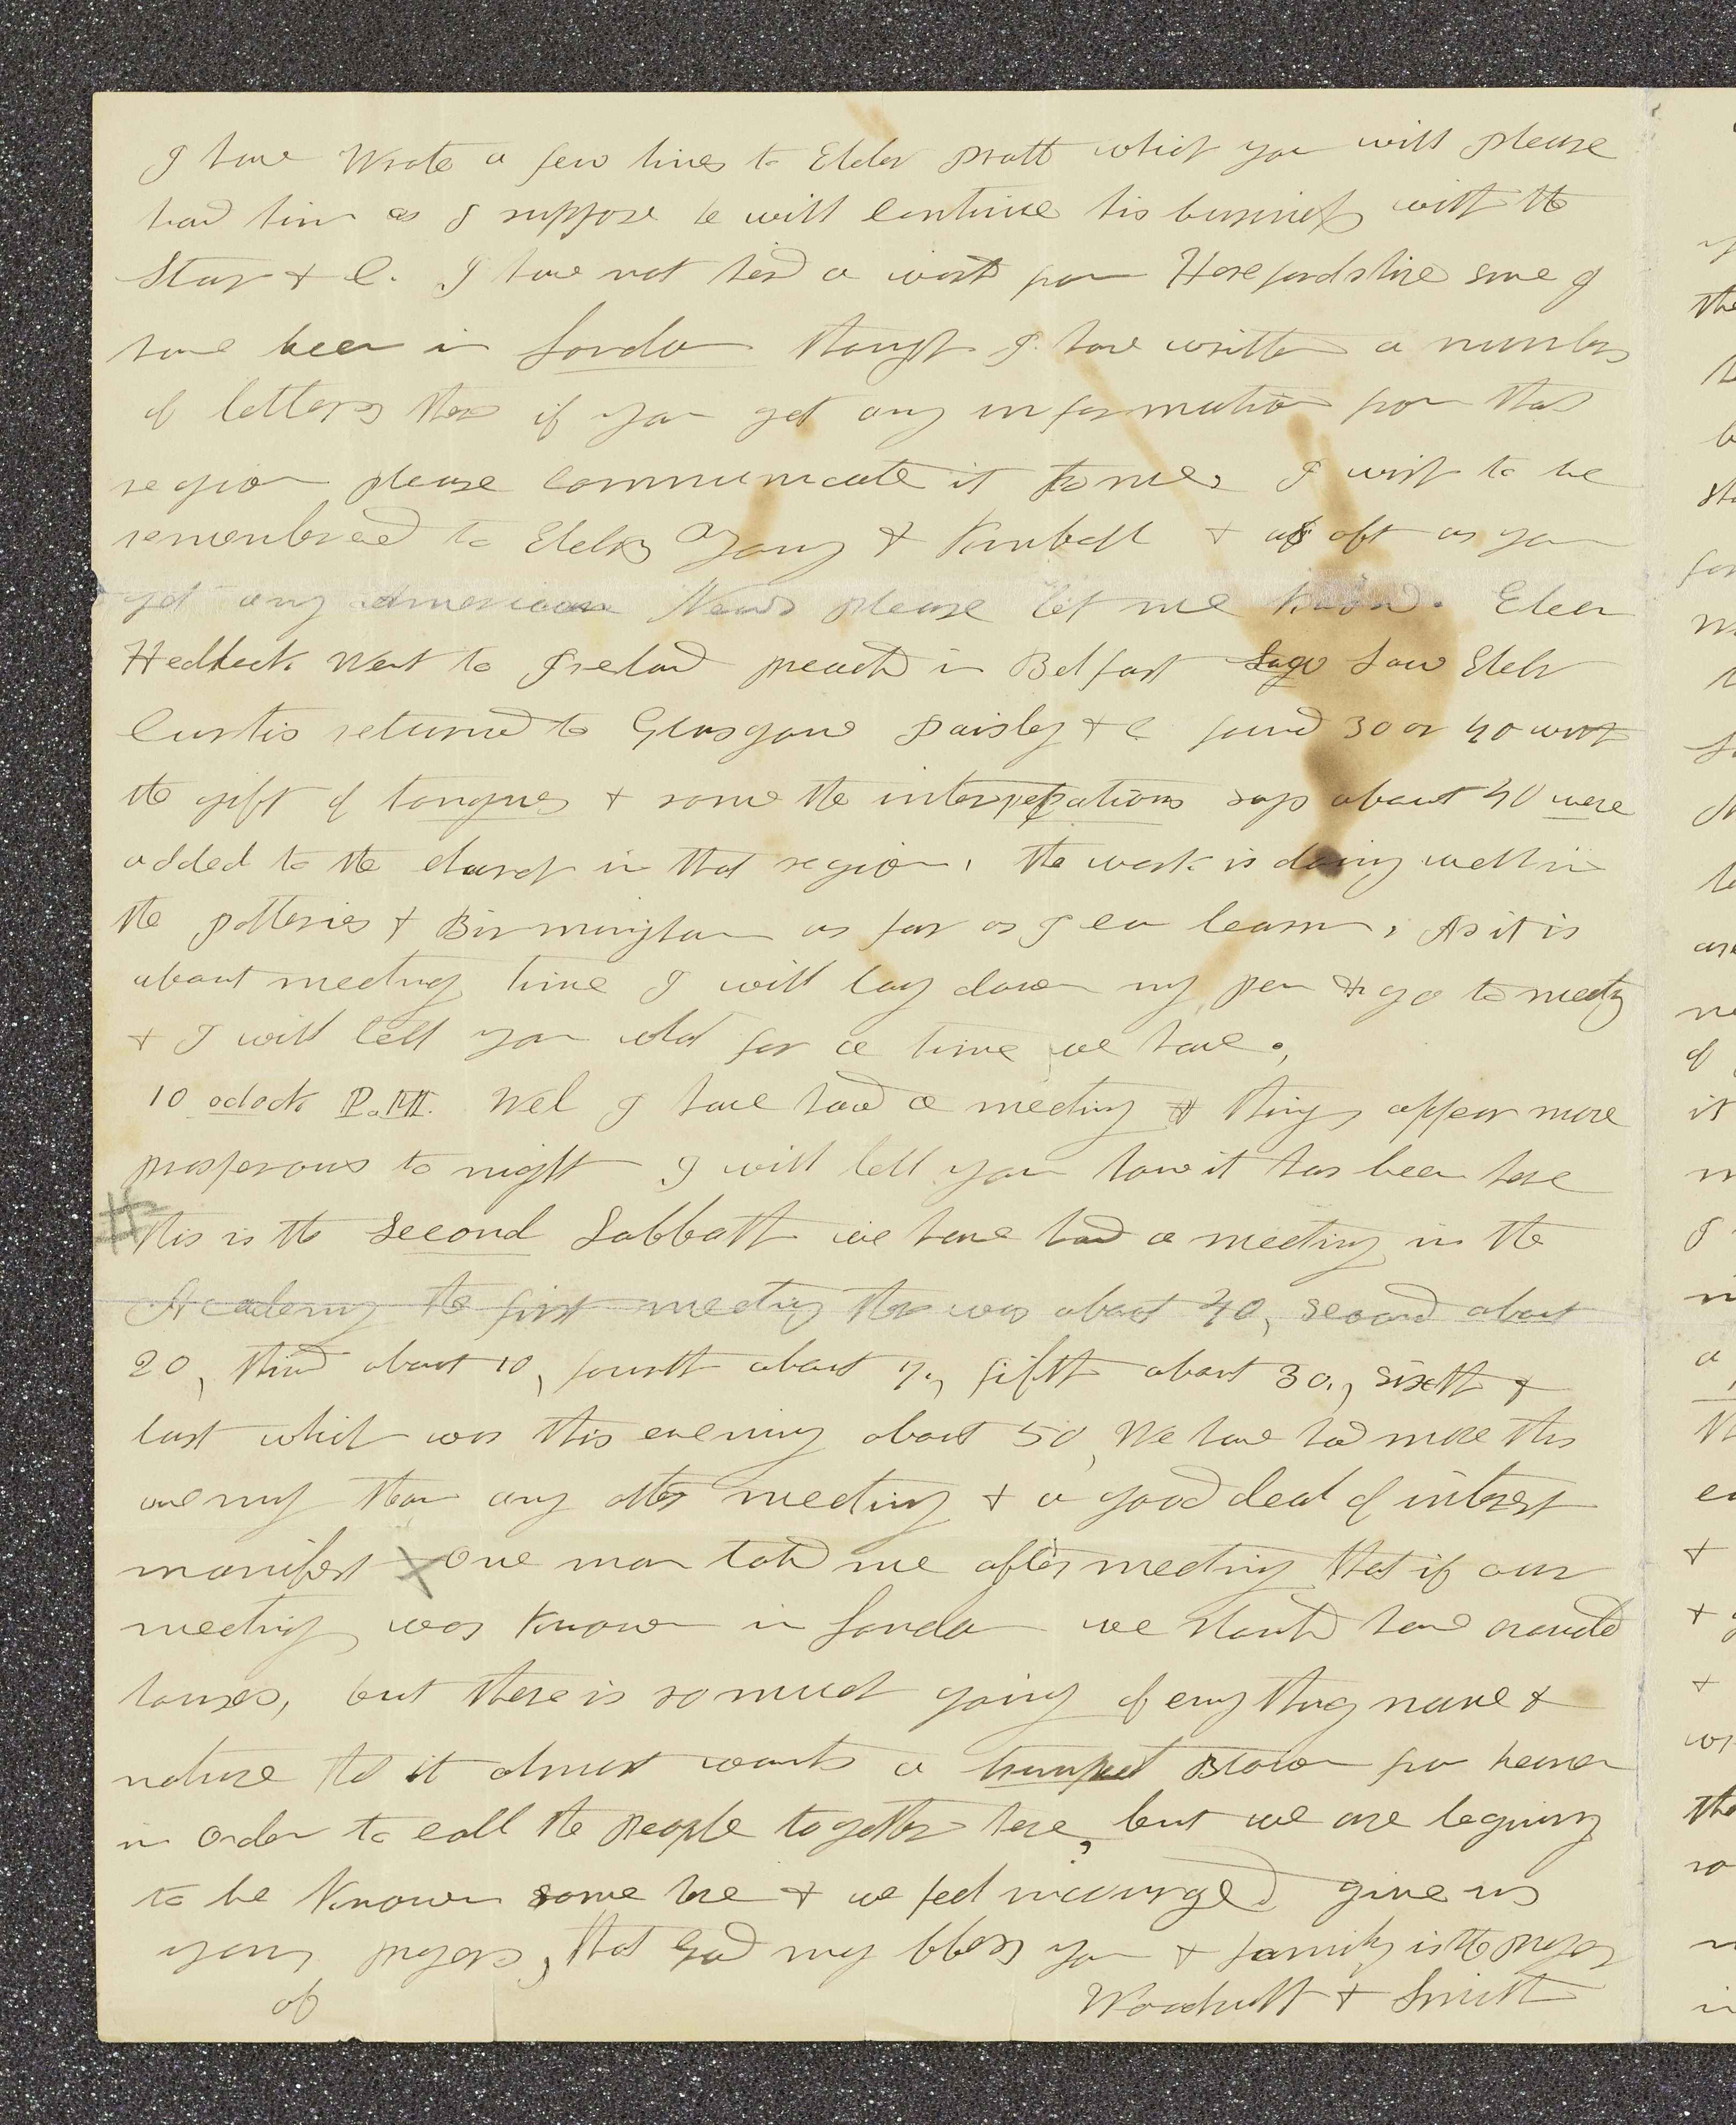 I have wrote a few lines to Elder Pratt which you will please
hand him as I suppose he will continue his business with the
Star & C. I have not herd a word from Herefordshire since I
have been in London though I have written a number
of letters there if you get any information from that
region please communicate it to me. I wish to be
remembered to Elders Young & Kimball & as oft as you
get any American News please let me know. Elder
Hedlock went to Ireland preachd in Belfast saw Elder
Curtis returned to Glasgow Paisley & C found 30 or 40 with
the gift of tongues & some the interpretations says about 40 were
added to the church in that region, the work is doing well in
the potteries & Birmingham as far as I can learn, As it is
about meeting time I will lay down my pen & go to meeting
& I will tell you what for a time we have.,
10 oclock P.M. Wel I have had a meeting & things appear more
prosperous to night I will tell you how it has been here
# This is the second Sabbath we have had a meeting in the
Academy the first meeting there was about 40, second about
20, third about 10, fourth about 7, fifth about 30., sixth &
last which was this evening about 50, We have had more this
evening than any other meeting & a good deal of interest
manifest X One man told me after meeting that if our
meeting was known in London we should have crowded
houses, but there is so much going of evry thing name &
nature that it almost wants a trumpet Blown from heaven
in order to call the people together here, but we are begining
to be known some here & we feel incourged give us
your prayers, that God may bless you & family is the prayer
of Woodruff & Smith